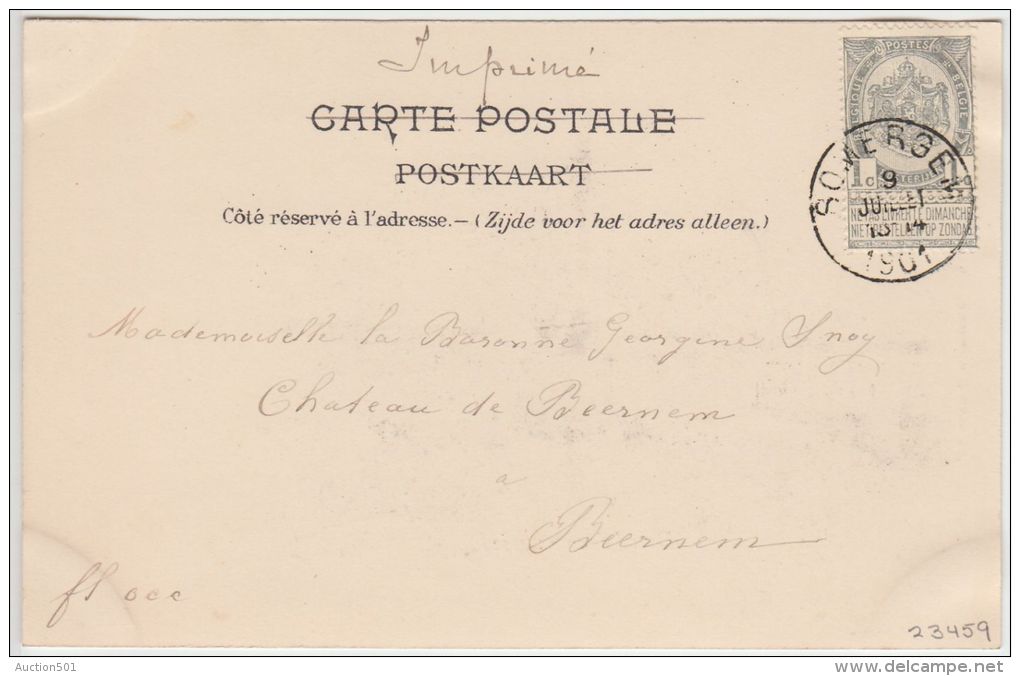 Imprimé
CARTE POSTALE
POSTKAART
Côté réservé à l'adresse.— (Zijde voor het adres alleen.)
POSTES
BELGIQUE BELGIE
1c 1c
NE PAS LIVRER LE DIMANCHE
NIET BESTELLEN OP ZONDAG
SOMERGEM
9
JUILLET
13-14
1901
Mademoiselle la Baronne Georgine Snoy
Chateau de Beernem
a
Beernem
fl occ
23459
Auction501
www.delcampe.net